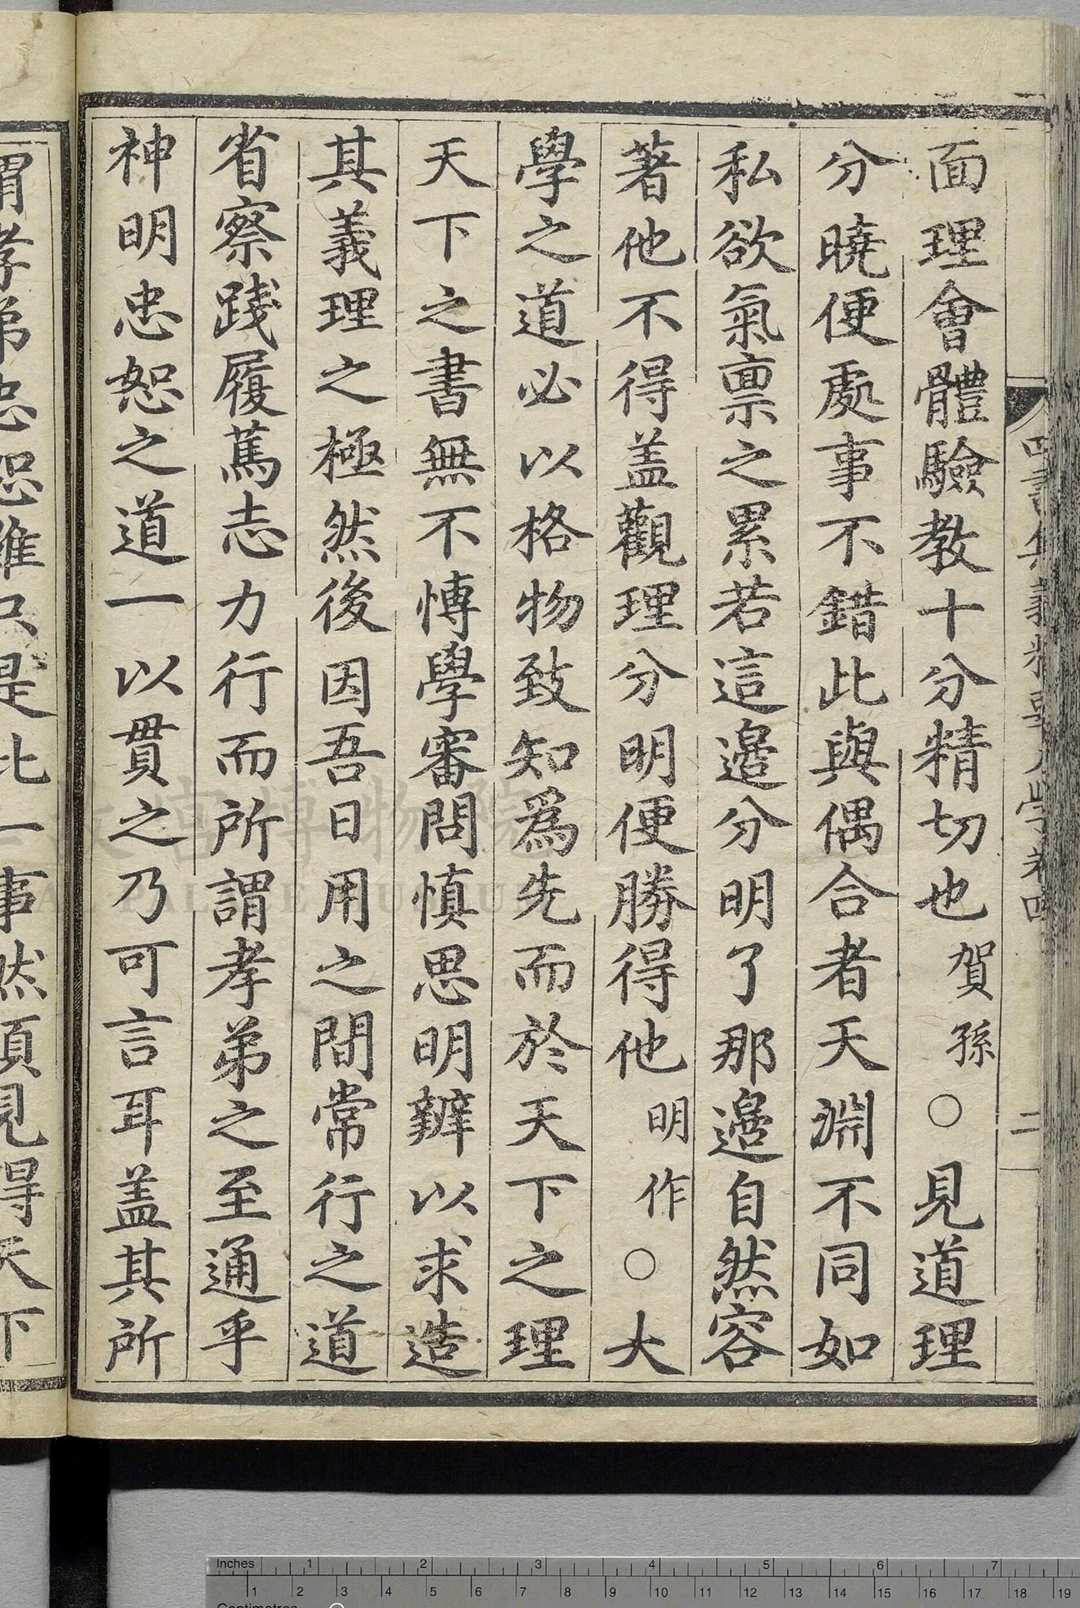 面理會體驗教十分精切也賀孫○見道理
分曉便處事不錯此與偶合者天淵不同如
私欲氣稟之累若這邉分明了那邉自然容
著他不得盖觀理分明便勝得他明作○大
學之道必以格物致知爲先而於天下之理
天下之書無不愽學審問慎思明辨以求造
其義理之極然後因吾日用之間常行之道
省察踐履篤志力行而所謂孝弟之至通乎
神明忠恕之道一以貫之乃可言耳盖其所
謂孝弟忠恕雖只是此一事然須見得天下
二
Inches 1 2 3 4 5 6 7
1 2 3 4 5 6 7 8 9 10 11 12 13 14 15 16 17 18 19